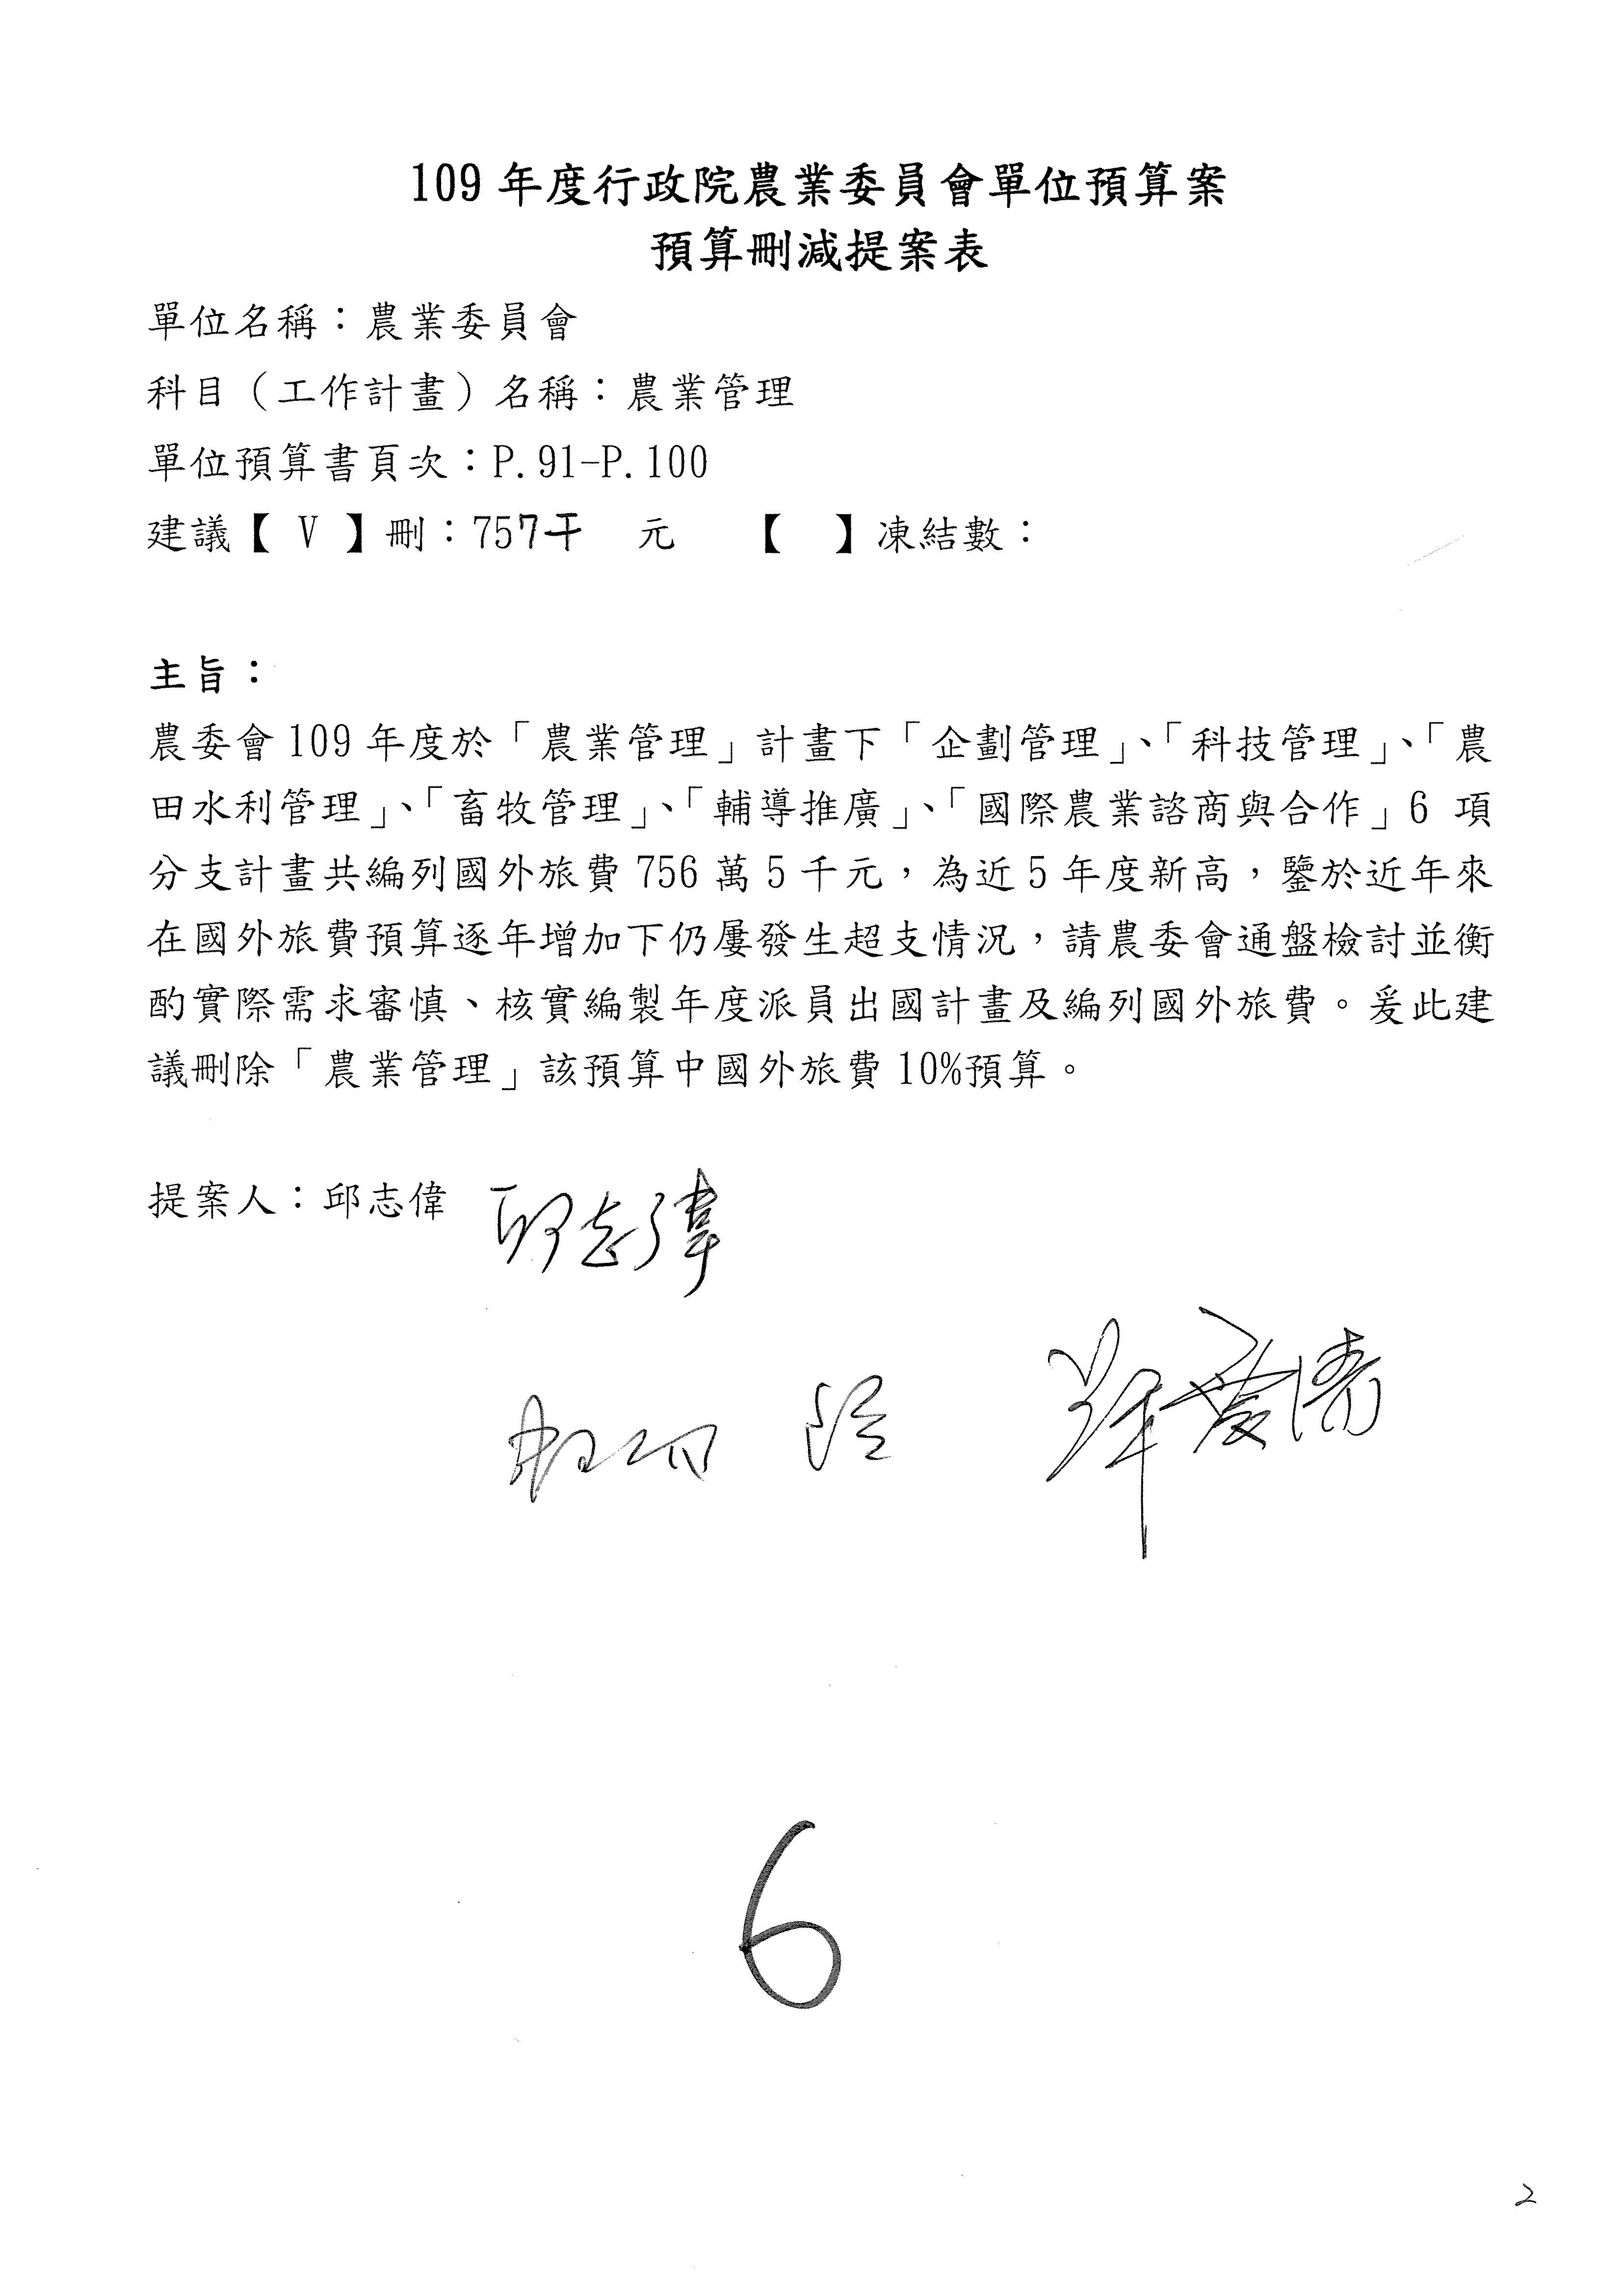 109 年度行政院農業委員會單位預算案
預算刪減提案表
單位名稱：農業委員會
科目（工作計畫）名稱：農業管理
單位預算書頁次：P.91-P.100
建議【 V 】刪：757千 元 【 】凍結數：
主旨：
農委會 109 年度於「農業管理」計畫下「企劃管理」、「科技管理」、「農
田水利管理」、「畜牧管理」、「輔導推廣」、「國際農業諮商與合作」6 項
分支計畫共編列國外旅費 756 萬 5 千元，為近 5 年度新高，鑒於近年來
在國外旅費預算逐年增加下仍屢發生超支情況，請農委會通盤檢討並衡
酌實際需求審慎、核實編製年度派員出國計畫及編列國外旅費。爰此建
議刪除「農業管理」該預算中國外旅費 10%預算。
提案人：邱志偉 邱志偉
6
2